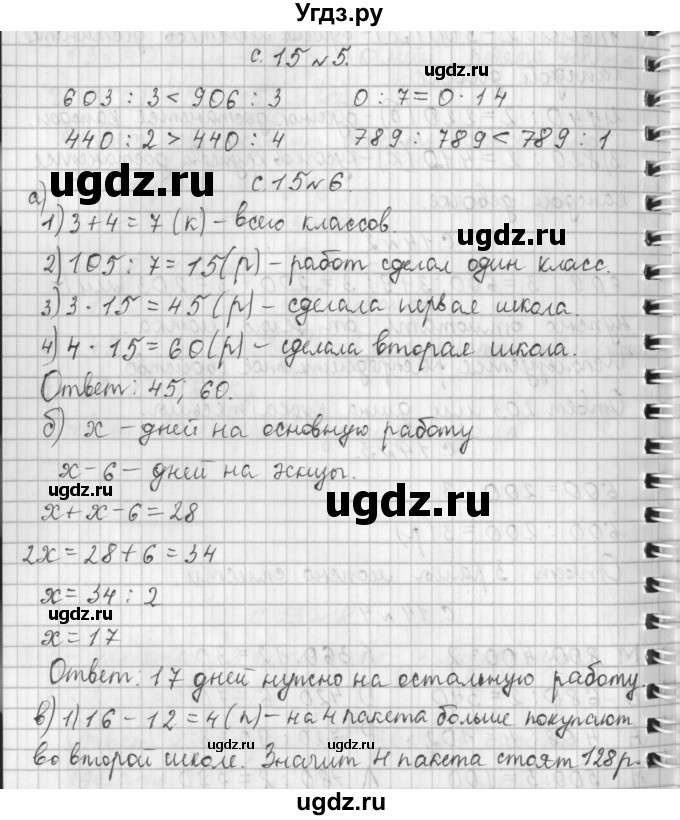 Угдз.ру
с. 15 № 5.
603 : 3 < 906 : 3    0 : 7 = 0 · 14
440 : 2 > 440 : 4    789 : 789 < 789 : 1
с 15 № 6.
а)
1) 3 + 4 = 7 (к) – всего классов.
2) 105 : 7 = 15 (р) – работ сделал один класс.
3) 3 · 15 = 45 (р) – сделала первая школа.
4) 4 · 15 = 60 (р) – сделала вторая школа.
Ответ: 45, 60.
б) х – дней на основную работу
х – 6 – дней на эскизы.
х + х – 6 = 28
2х = 28 + 6 = 34
х = 34 : 2
х = 17
Ответ: 17 дней нужно на остальную работу.
в) 1) 16 – 12 = 4 (п) – на 4 пакета больше покупают
во второй школе. Значит 4 пакета стоят 128 р.
ugdz.ru
ugdz.ru
ugdz.ru
ugdz.ru
ugdz.ru
ugdz.ru
ugdz.ru
ugdz.ru
ugdz.ru
ugdz.ru